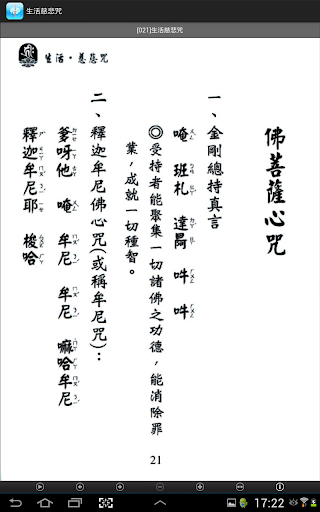 生活慈悲咒
[021]生活慈悲咒
生活‧慈悲咒
佛菩薩心咒
一、金剛總持真言
唵 班札 達爾 吽 吽
◎受持者能聚集一切諸佛之功德，能消除罪
業，成就一切種智。
二、釋迦牟尼佛心咒(或稱牟尼咒)：
爹呀他 唵 牟尼 牟尼 嘛哈牟尼
釋迦牟尼耶 梭哈
21
17:22